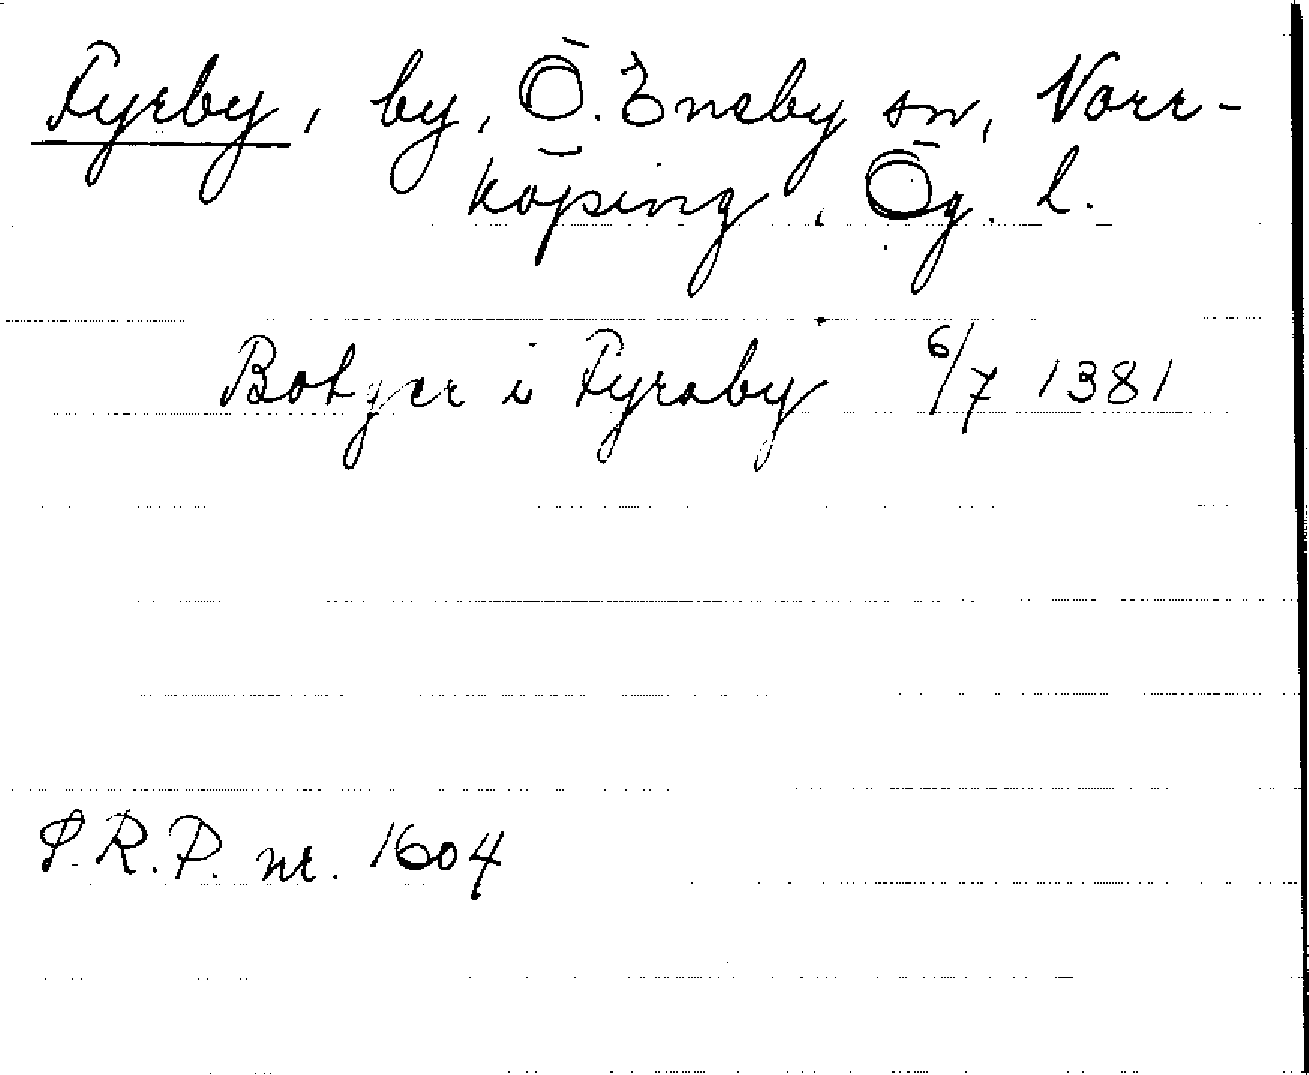 Fyrby, by, Ö. Eneby sn, Norr-
köping, Ög. l.
Botger i Fyraby 6/7 1381
S.R.P. nr. 1604